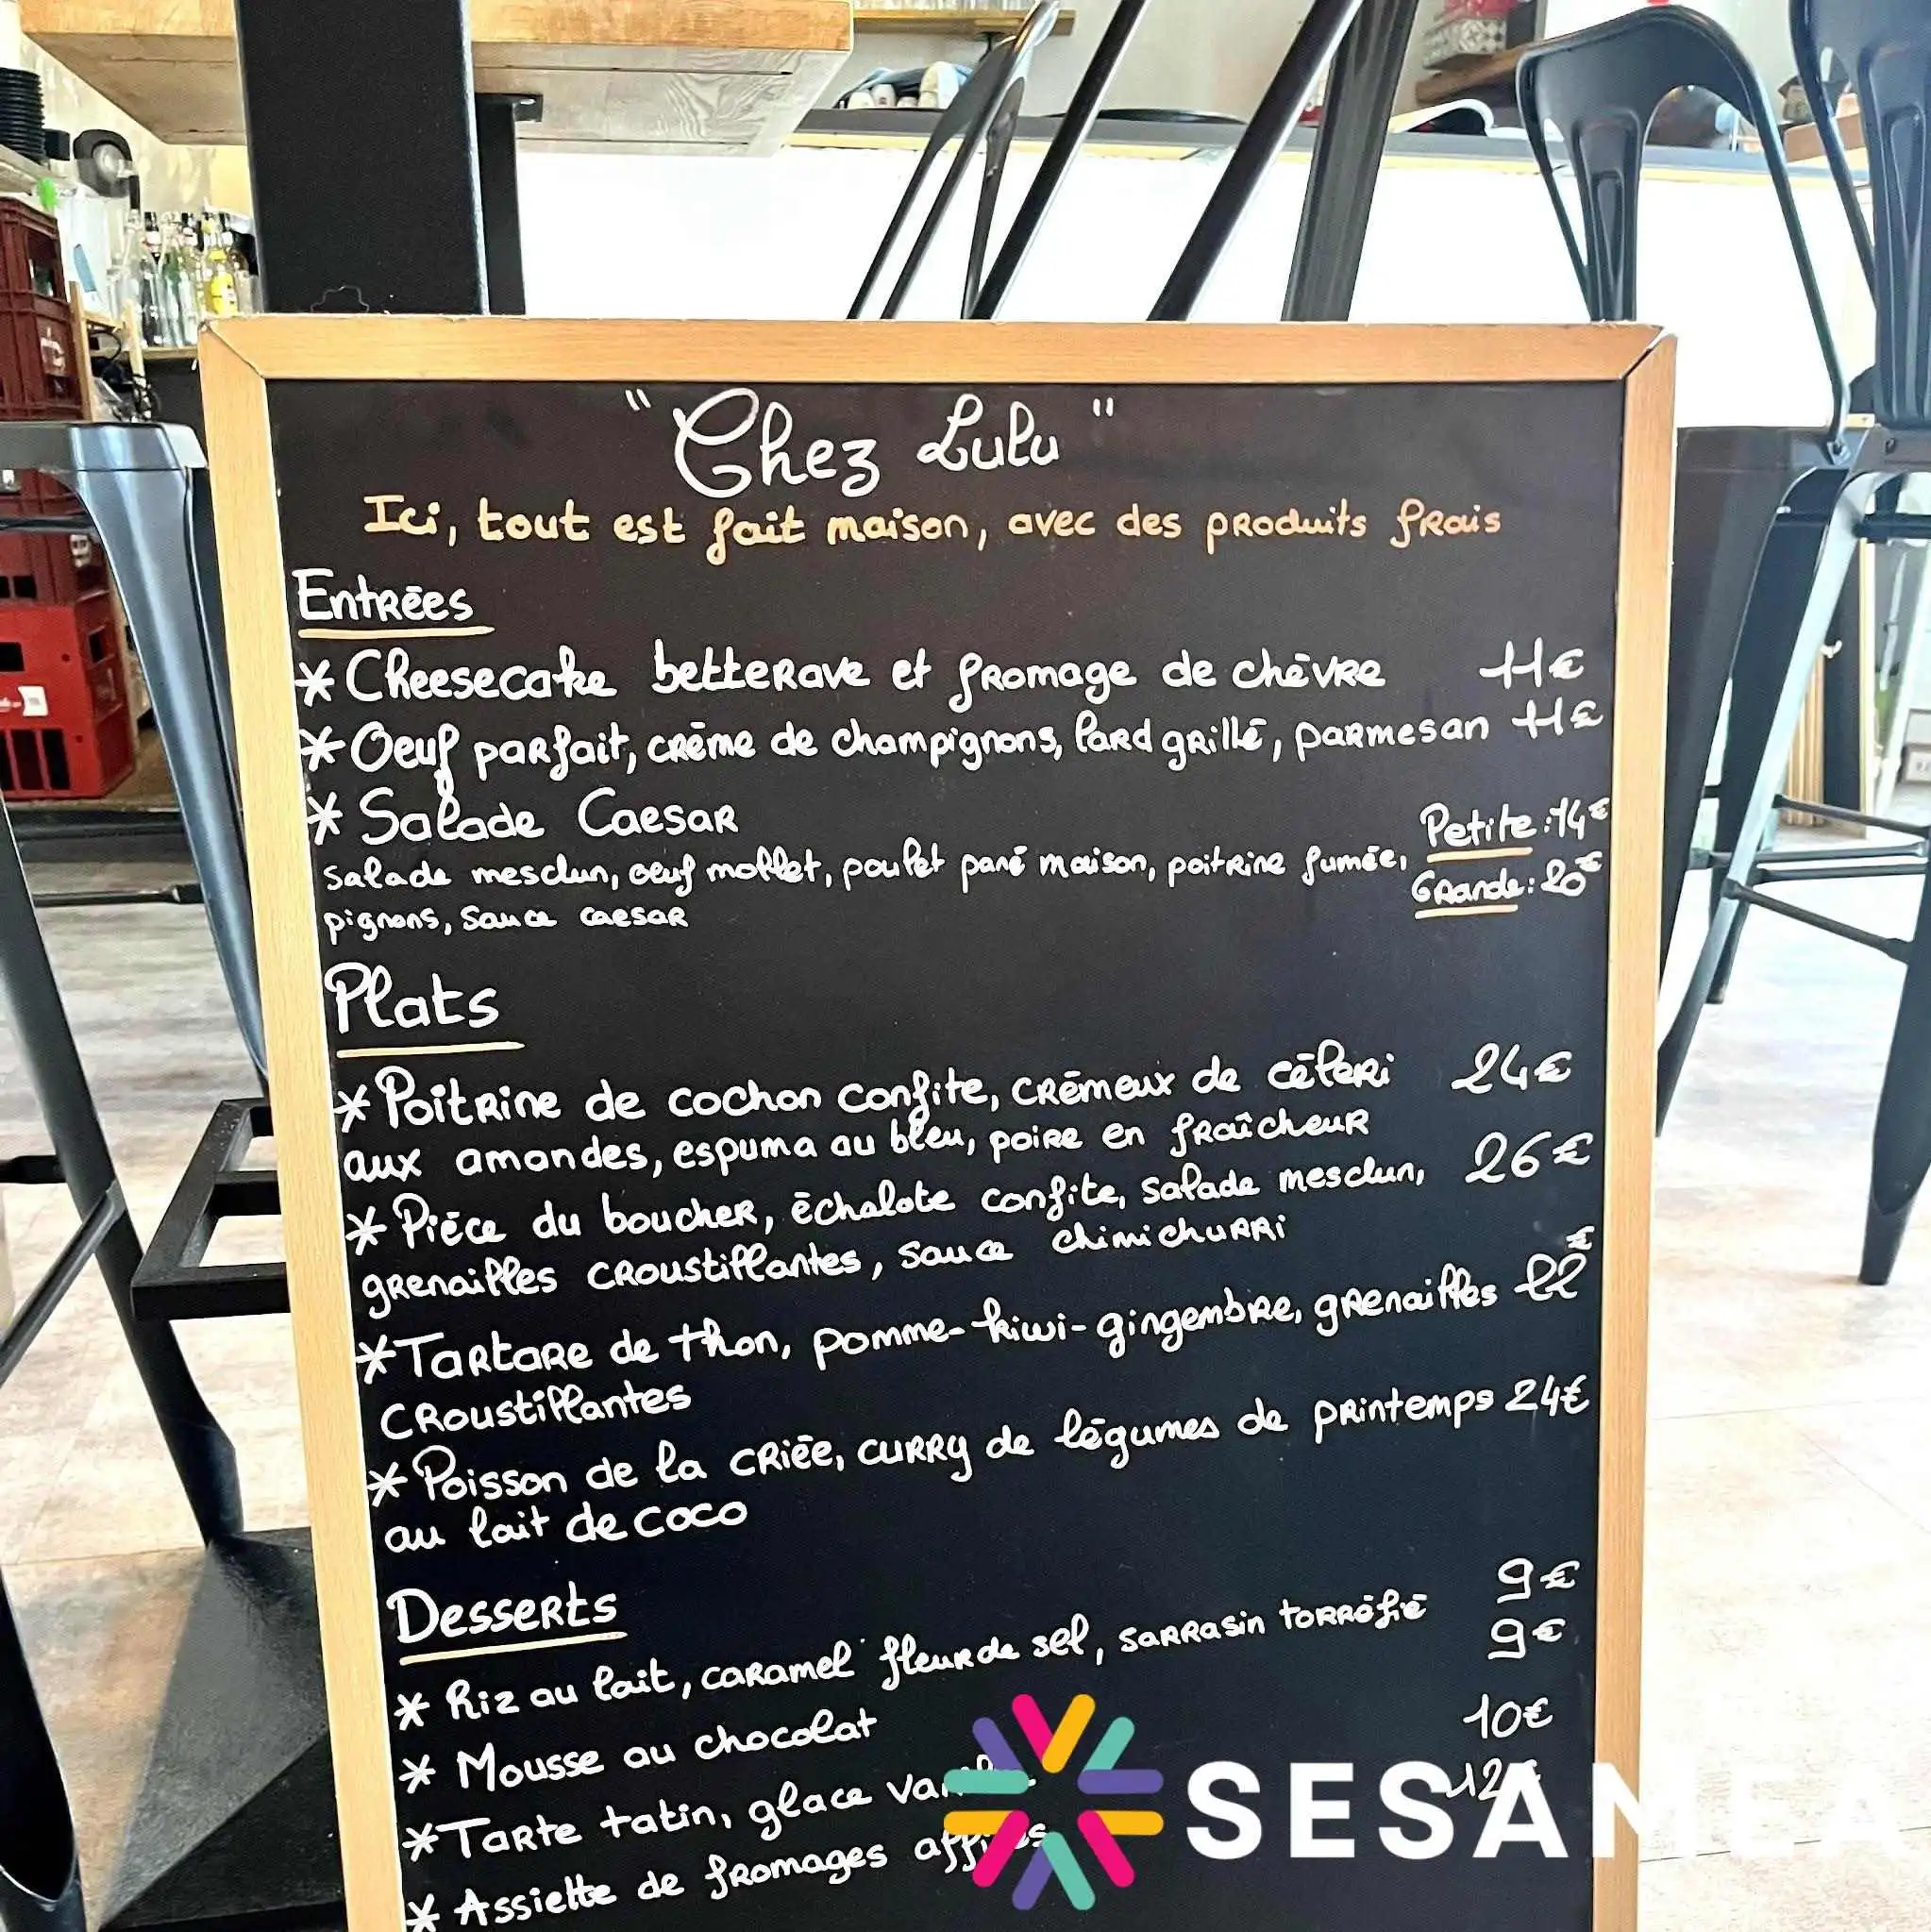 "Chez Lulu"
Ici, tout est fait maison, avec des produits frais
Entrées
* Cheesecake betterave et fromage de chèvre 11€
* Oeuf parfait, crème de champignons, lard grillé, parmesan 11€
* Salade Caesar Petite : 14€
salade mesclun, oeuf mollet, poulet pané maison, poitrine fumée, Grande : 20€
pignons, sauce caesar
Plats
* Poitrine de cochon confite, crémeux de céleri 24€
aux amandes, espuma au bleu, poire en fraîcheur
* Pièce du boucher, échalote confite, salade mesclun, 26€
grenailles croustillantes, sauce chimichurri
* Tartare de thon, pomme-kiwi-gingembre, grenailles 22€
croustillantes
* Poisson de la criée, curry de légumes de printemps 24€
au lait de coco
Desserts
* Riz au lait, caramel fleur de sel, sarrasin torréfié 9€
* Mousse au chocolat 9€
* Tarte tatin, glace 10€
* Assiette de fromages 12€
SESAMEA